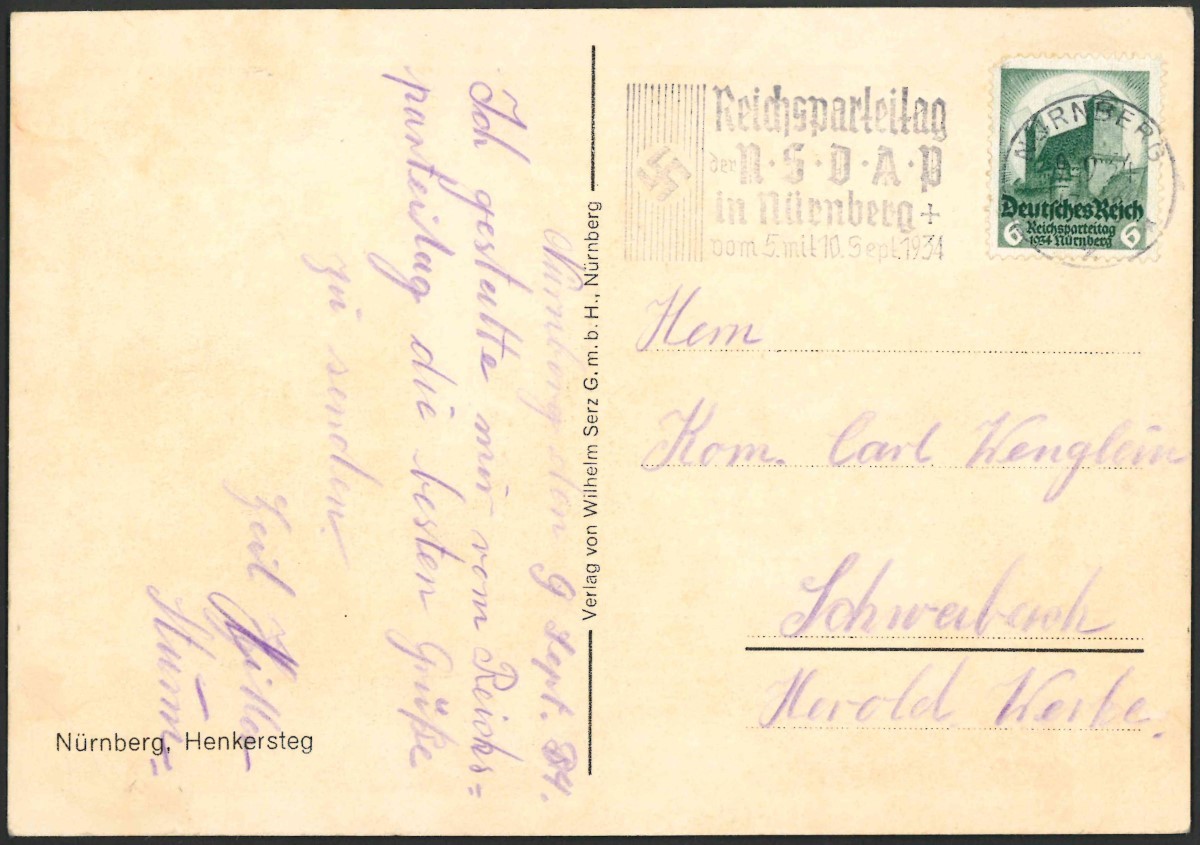 Nürnberg den 9 Sept. 34.
Ich gestatte mir vom Reichs=
parteitag die besten Grüße
zu senden.
Heil Hitler
Nürnberg, Henkersteg
Verlag von Wilhelm Serz G.m.b.H., Nürnberg
Reichsparteitag
der N·S·D·A·P
in Nürnberg +
vom 5. mit 10. Sept. 1934
NÜRNBERG
Deutsches Reich
Reichsparteitag
6 1934 Nürnberg 6
Herrn
Kom. Carl Wenglein
Schwabach
Herold Werke.